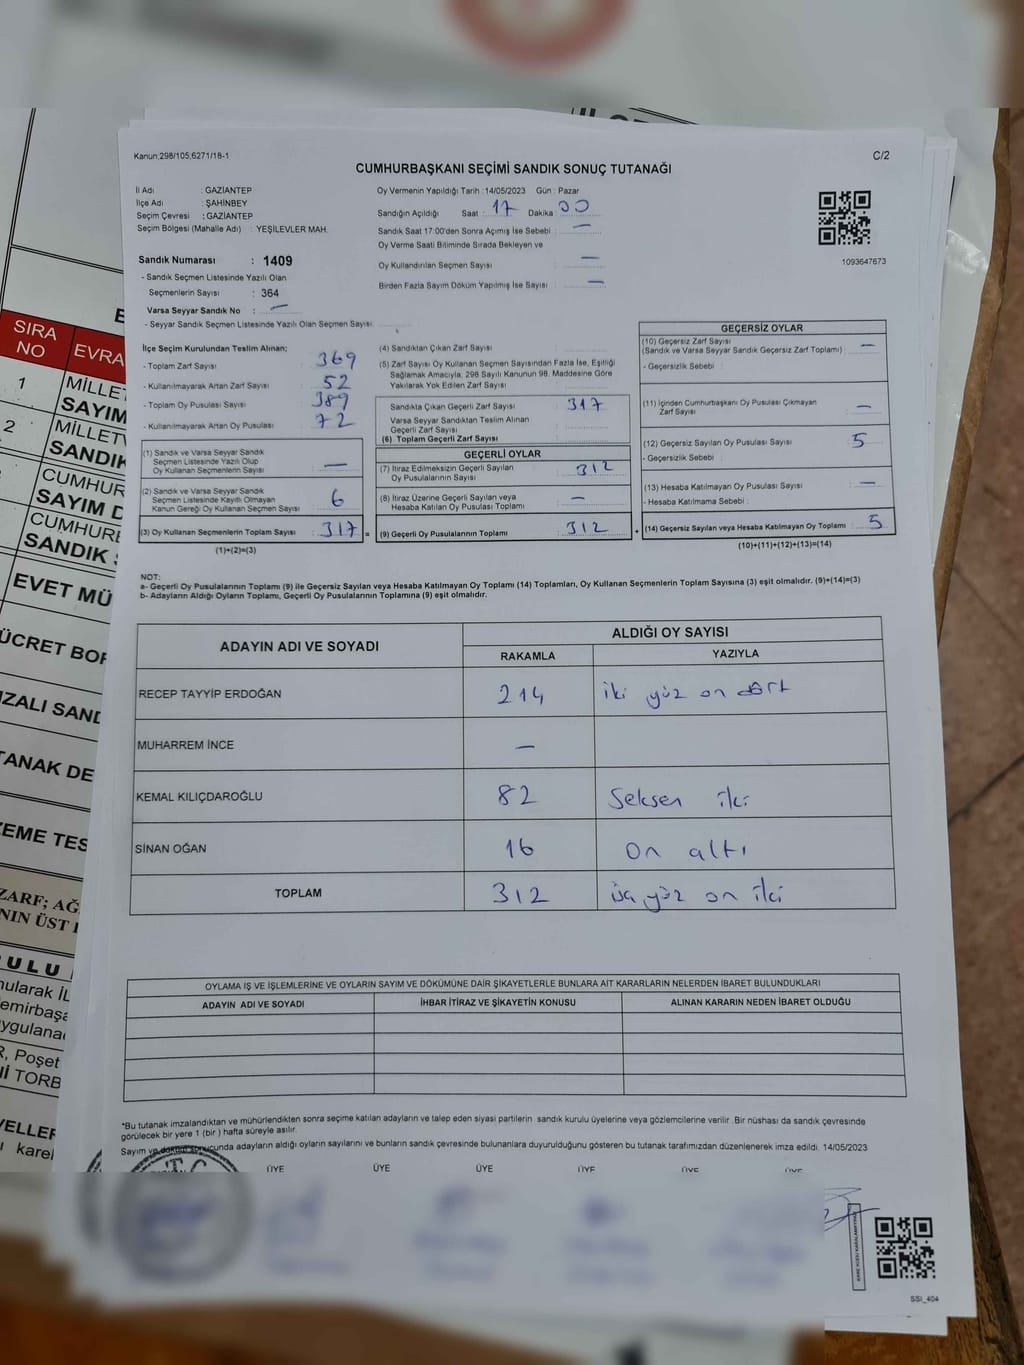 Kanun;298/105,6271/18-1
C/2
CUMHURBAŞKANI SEÇİMİ SANDIK SONUÇ TUTANAĞI
İl Adı : GAZİANTEP
İlçe Adı : ŞAHİNBEY
Seçim Çevresi : GAZİANTEP
Seçim Bölgesi (Mahalle Adı) : YEŞİLEVLER MAH.
Oy Vermenin Yapıldığı Tarih :14/05/2023 Gün : Pazar
Sandığın Açıldığı Saat : 17 Dakika : 00
Sandık Saat 17:00'den Sonra Açımış İse Sebebi : —
Oy Verme Saati Bitiminde Sırada Bekleyen ve
Oy Kullandırılan Seçmen Sayısı —
Birden Fazla Sayım Döküm Yapılmış İse Sayısı : —
1093647673
Sandık Numarası : 1409
- Sandık Seçmen Listesinde Yazılı Olan
Seçmenlerin Sayısı : 364
Varsa Seyyar Sandık No : —
- Seyyar Sandık Seçmen Listesinde Yazılı Olan Seçmen Sayısı:
İlçe Seçim Kurulundan Teslim Alınan;
- Toplam Zarf Sayısı : 369
- Kullanılmayarak Artan Zarf Sayısı : 52
- Toplam Oy Pusulası Sayısı : 389
- Kullanılmayarak Artan Oy Pusulası : 72
(1) Sandık ve Varsa Seyyar Sandık
Seçmen Listesinde Yazılı Olup
Oy Kullanan Seçmenlerin Sayısı —
(2) Sandık ve Varsa Seyyar Sandık
Seçmen Listesinde Kayıtlı Olmayan
Kanun Gereği Oy Kullanan Seçmen Sayısı : 6
(3) Oy Kullanan Seçmenlerin Toplam Sayısı : 317 =
(1)+(2)=(3)
(4) Sandıktan Çıkan Zarf Sayısı :
(5) Zarf Sayısı Oy Kullanan Seçmen Sayısından Fazla İse, Eşitliği
Sağlamak Amacıyla, 298 Sayılı Kanunun 98. Maddesine Göre
Yakılarak Yok Edilen Zarf Sayısı :
Sandıkta Çıkan Geçerli Zarf Sayısı : 317
Varsa Seyyar Sandıktan Teslim Alınan
Geçerli Zarf Sayısı :
(6) Toplam Geçerli Zarf Sayısı :
GEÇERLİ OYLAR
(7) İtiraz Edilmeksizin Geçerli Sayılan
Oy Pusulalarının Sayısı : 312
(8) İtiraz Üzerine Geçerli Sayılan veya
Hesaba Katılan Oy Pusulası Toplamı : —
(9) Geçerli Oy Pusulalarının Toplamı : 312 +
GEÇERSİZ OYLAR
(10) Geçersiz Zarf Sayısı
(Sandık ve Varsa Seyyar Sandık Geçersiz Zarf Toplamı) : —
- Geçersizlik Sebebi :
(11) İçinden Cumhurbaşkanı Oy Pusulası Çıkmayan
Zarf Sayısı : —
(12) Geçersiz Sayılan Oy Pusulası Sayısı : 5
- Geçersizlik Sebebi :
(13) Hesaba Katılmayan Oy Pusulası Sayısı : —
- Hesaba Katılmama Sebebi :
(14) Geçersiz Sayılan veya Hesaba Katılmayan Oy Toplamı : 5
(10)+(11)+(12)+(13)=(14)
NOT:
a- Geçerli Oy Pusulalarının Toplamı (9) ile Geçersiz Sayılan veya Hesaba Katılmayan Oy Toplamı (14) Toplamları, Oy Kullanan Seçmenlerin Toplam Sayısına (3) eşit olmalıdır. (9)+(14)=(3)
b- Adayların Aldığı Oyların Toplamı, Geçerli Oy Pusulalarının Toplamına (9) eşit olmalıdır.
ADAYIN ADI VE SOYADI
ALDIĞI OY SAYISI
RAKAMLA YAZIYLA
RECEP TAYYİP ERDOĞAN 214 iki yüz on dört
MUHARREM İNCE —
KEMAL KILIÇDAROĞLU 82 Seksen iki
SİNAN OĞAN 16 on altı
TOPLAM 312 üç yüz on iki
OYLAMA İŞ VE İŞLEMLERİNE VE OYLARIN SAYIM VE DÖKÜMÜNE DAİR ŞİKAYETLERLE BUNLARA AİT KARARLARIN NELERDEN İBARET BULUNDUKLARI
ADAYIN ADI VE SOYADI İHBAR İTİRAZ VE ŞİKAYETİN KONUSU ALINAN KARARIN NEDEN İBARET OLDUĞU
*Bu tutanak imzalandıktan ve mühürlendikten sonra seçime katılan adayların ve talep eden siyasi partilerin sandık kurulu üyelerine veya gözlemcilerine verilir. Bir nüshası da sandık çevresinde
görülecek bir yere 1 (bir) hafta süreyle asılır.
Sayım ve döküm sonucunda adayların aldığı oyların sayılarını ve bunların sandık çevresinde bulunanlara duyurulduğunu gösteren bu tutanak tarafımızdan düzenlenerek imza edildi. 14/05/2023
ÜYE ÜYE ÜYE ÜYE ÜYE ÜYE
T.C.
SSI_404
SIRA
NO
EVRA
1
MİLLE
SAYIM
2
MİLLETV
SANDIK
CUMHUR
SAYIM D
CUMHURE
SANDIK
EVET MÜ
ÜCRET BOR
IZALI SAND
TANAK DE
ZEME TES
ZARF; AĞ
NIN ÜST
ULU
nularak İL
emirbaşa
uygulana
R, Poşet
TORB
VELLER
karel